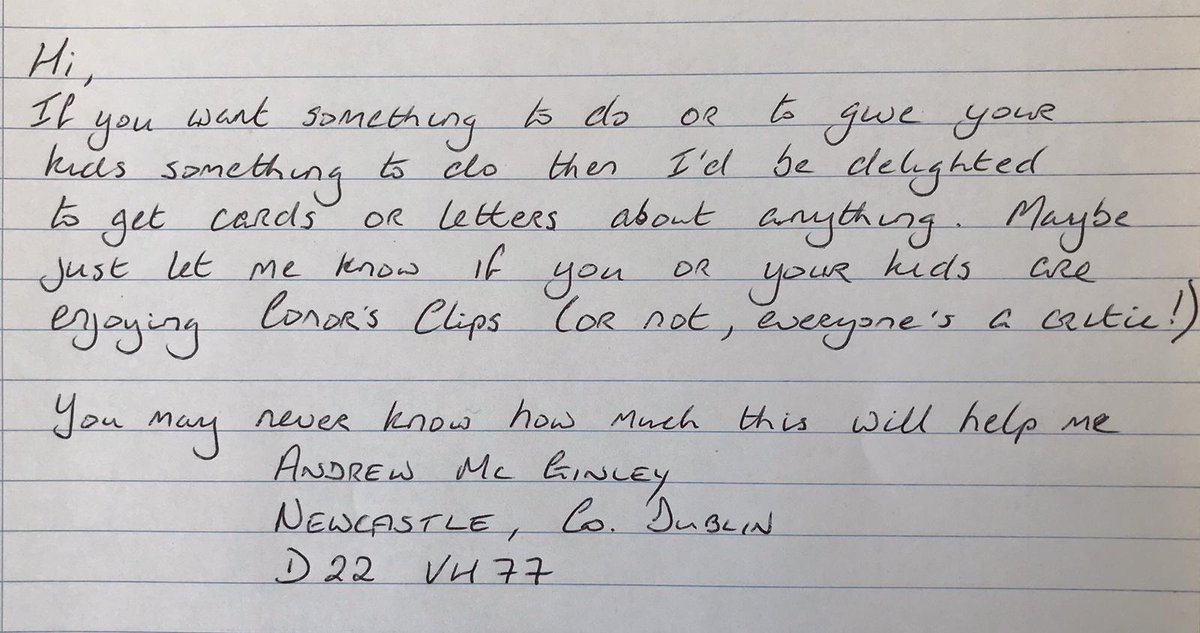 Hi,
If you want something to do OR to give your
kids something to do then I'd be delighted
to get cards OR letters about anything. Maybe
just let me know if you OR your kids are
enjoying Conor's Clips (OR not, everyone's a critic!)
You may never know how much this will help me
ANDREW Mc GINLEY
NEWCASTLE, Co. DUBLIN
D22 VH77